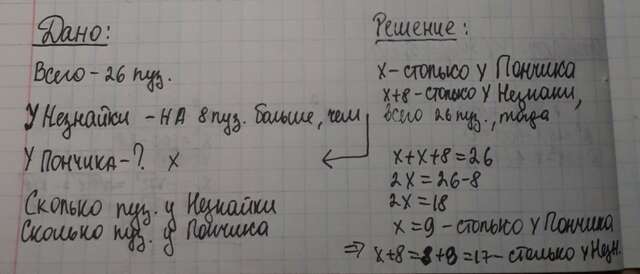 Дано:
Всего - 26 пуз.
У Незнайки - НА 8 пуз. больше, чем
У Пончика - ? x
Сколько пуз. у Незнайки
Сколько пуз. у Пончика
Решение:
x - столько у Пончика
x+8 - столько у Незнаки,
всего 26 пуз., тогда
x+x+8=26
2x=26-8
2x=18
x=9 - столько у Пончика
=> x+8=8+9=17 - столько у Незн.